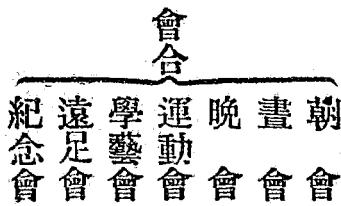 會合
朝會
晝會
晚會
運動會
學藝會
遠足會
紀念會